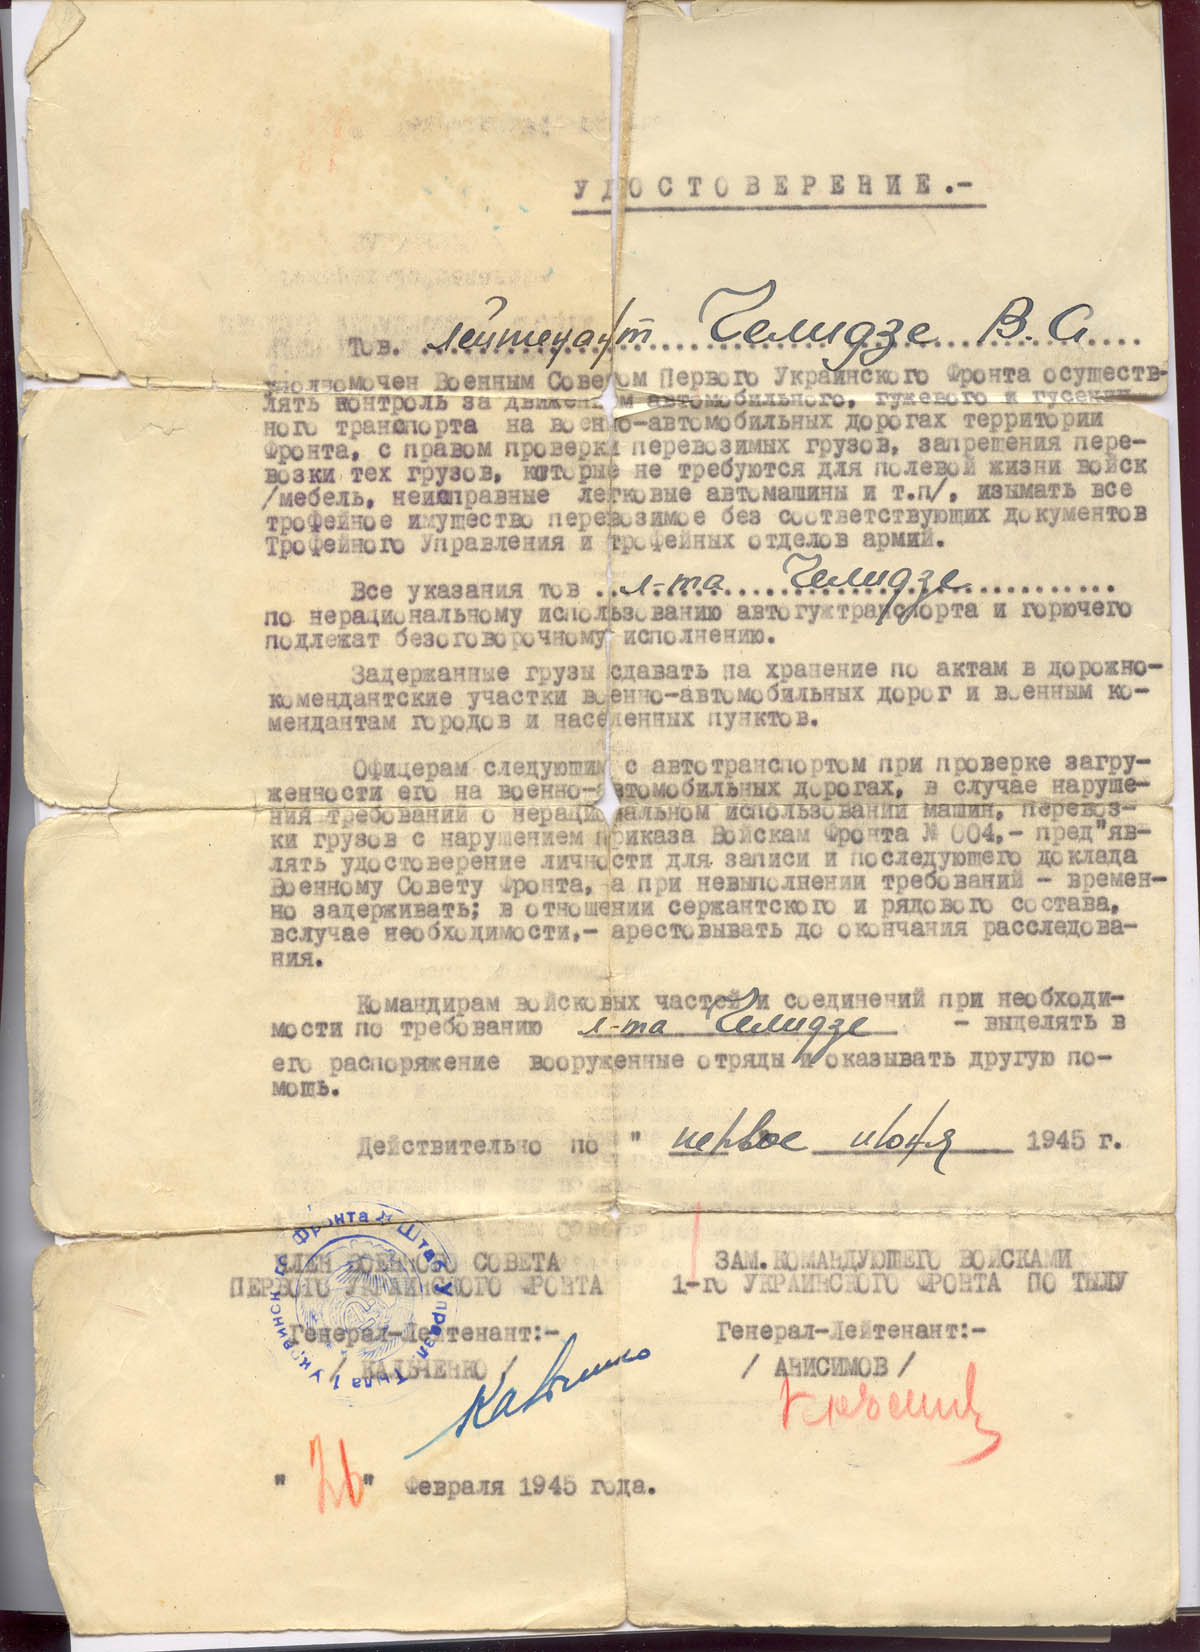 УДОСТОВЕРЕНИЕ.-
Тов. лейтенант Челидзе В. С.
уполномочен Военным Советом Первого Украинского Фронта осуществ-
лять контроль за движением автомобильного, гужевого и гусенич-
ного транспорта на военно-автомобильных дорогах территории
Фронта, с правом проверки перевозимых грузов, запрещения пере-
возки тех грузов, которые не требуются для полевой жизни войск
/мебель, неисправные легковые автомашины и т.п/, изымать все
трофейное имущество перевозимое без соответствующих документов
Трофейного Управления и трофейных отделов армий.
Все указания тов ..л-та Челидзе
по нерациональному использованию автогужтранспорта и горючего
подлежат безоговорочному исполнению.
Задержанные грузы сдавать на хранение по актам в дорожно-
комендантские участки военно-автомобильных дорог и военным ко-
мендантам городов и населенных пунктов.
Офицерам следующим с автотранспортом при проверке загру-
женности его на военно-автомобильных дорогах, в случае наруше-
ния требований о нерациональном использовании машин, перевоз-
ки грузов с нарушением приказа Войскам Фронта № 004,- пред"яв-
лять удостоверение личности для записи и последующего доклада
Военному Совету Фронта, а при невыполнении требований - времен-
но задерживать; в отношении сержантского и рядового состава,
вслучае необходимости,- арестовывать до окончания расследова-
ния.
Командирам войсковых частей и соединений при необходи-
мости по требованию л-та Челидзе - выделять в
его распоряжение вооруженные отряды и оказывать другую по-
мощь.
Действительно по " первое июня 1945 г.
ЧЛЕН ВОЕННОГО СОВЕТА
ПЕРВОГО УКРАИНСКОГО ФРОНТА
Генерал-Лейтенант:-
/ КАЛЬЧЕНКО /
Кальченко
ЗАМ.КОМАНДУЮЩЕГО ВОЙСКАМИ
1-го УКРАИНСКОГО ФРОНТА ПО ТЫЛУ
Генерал-Лейтенант:-
/ АНИСИМОВ /
Штаб Управл. Тыла 1 Украинск Фронта
" 26 " Февраля 1945 года.